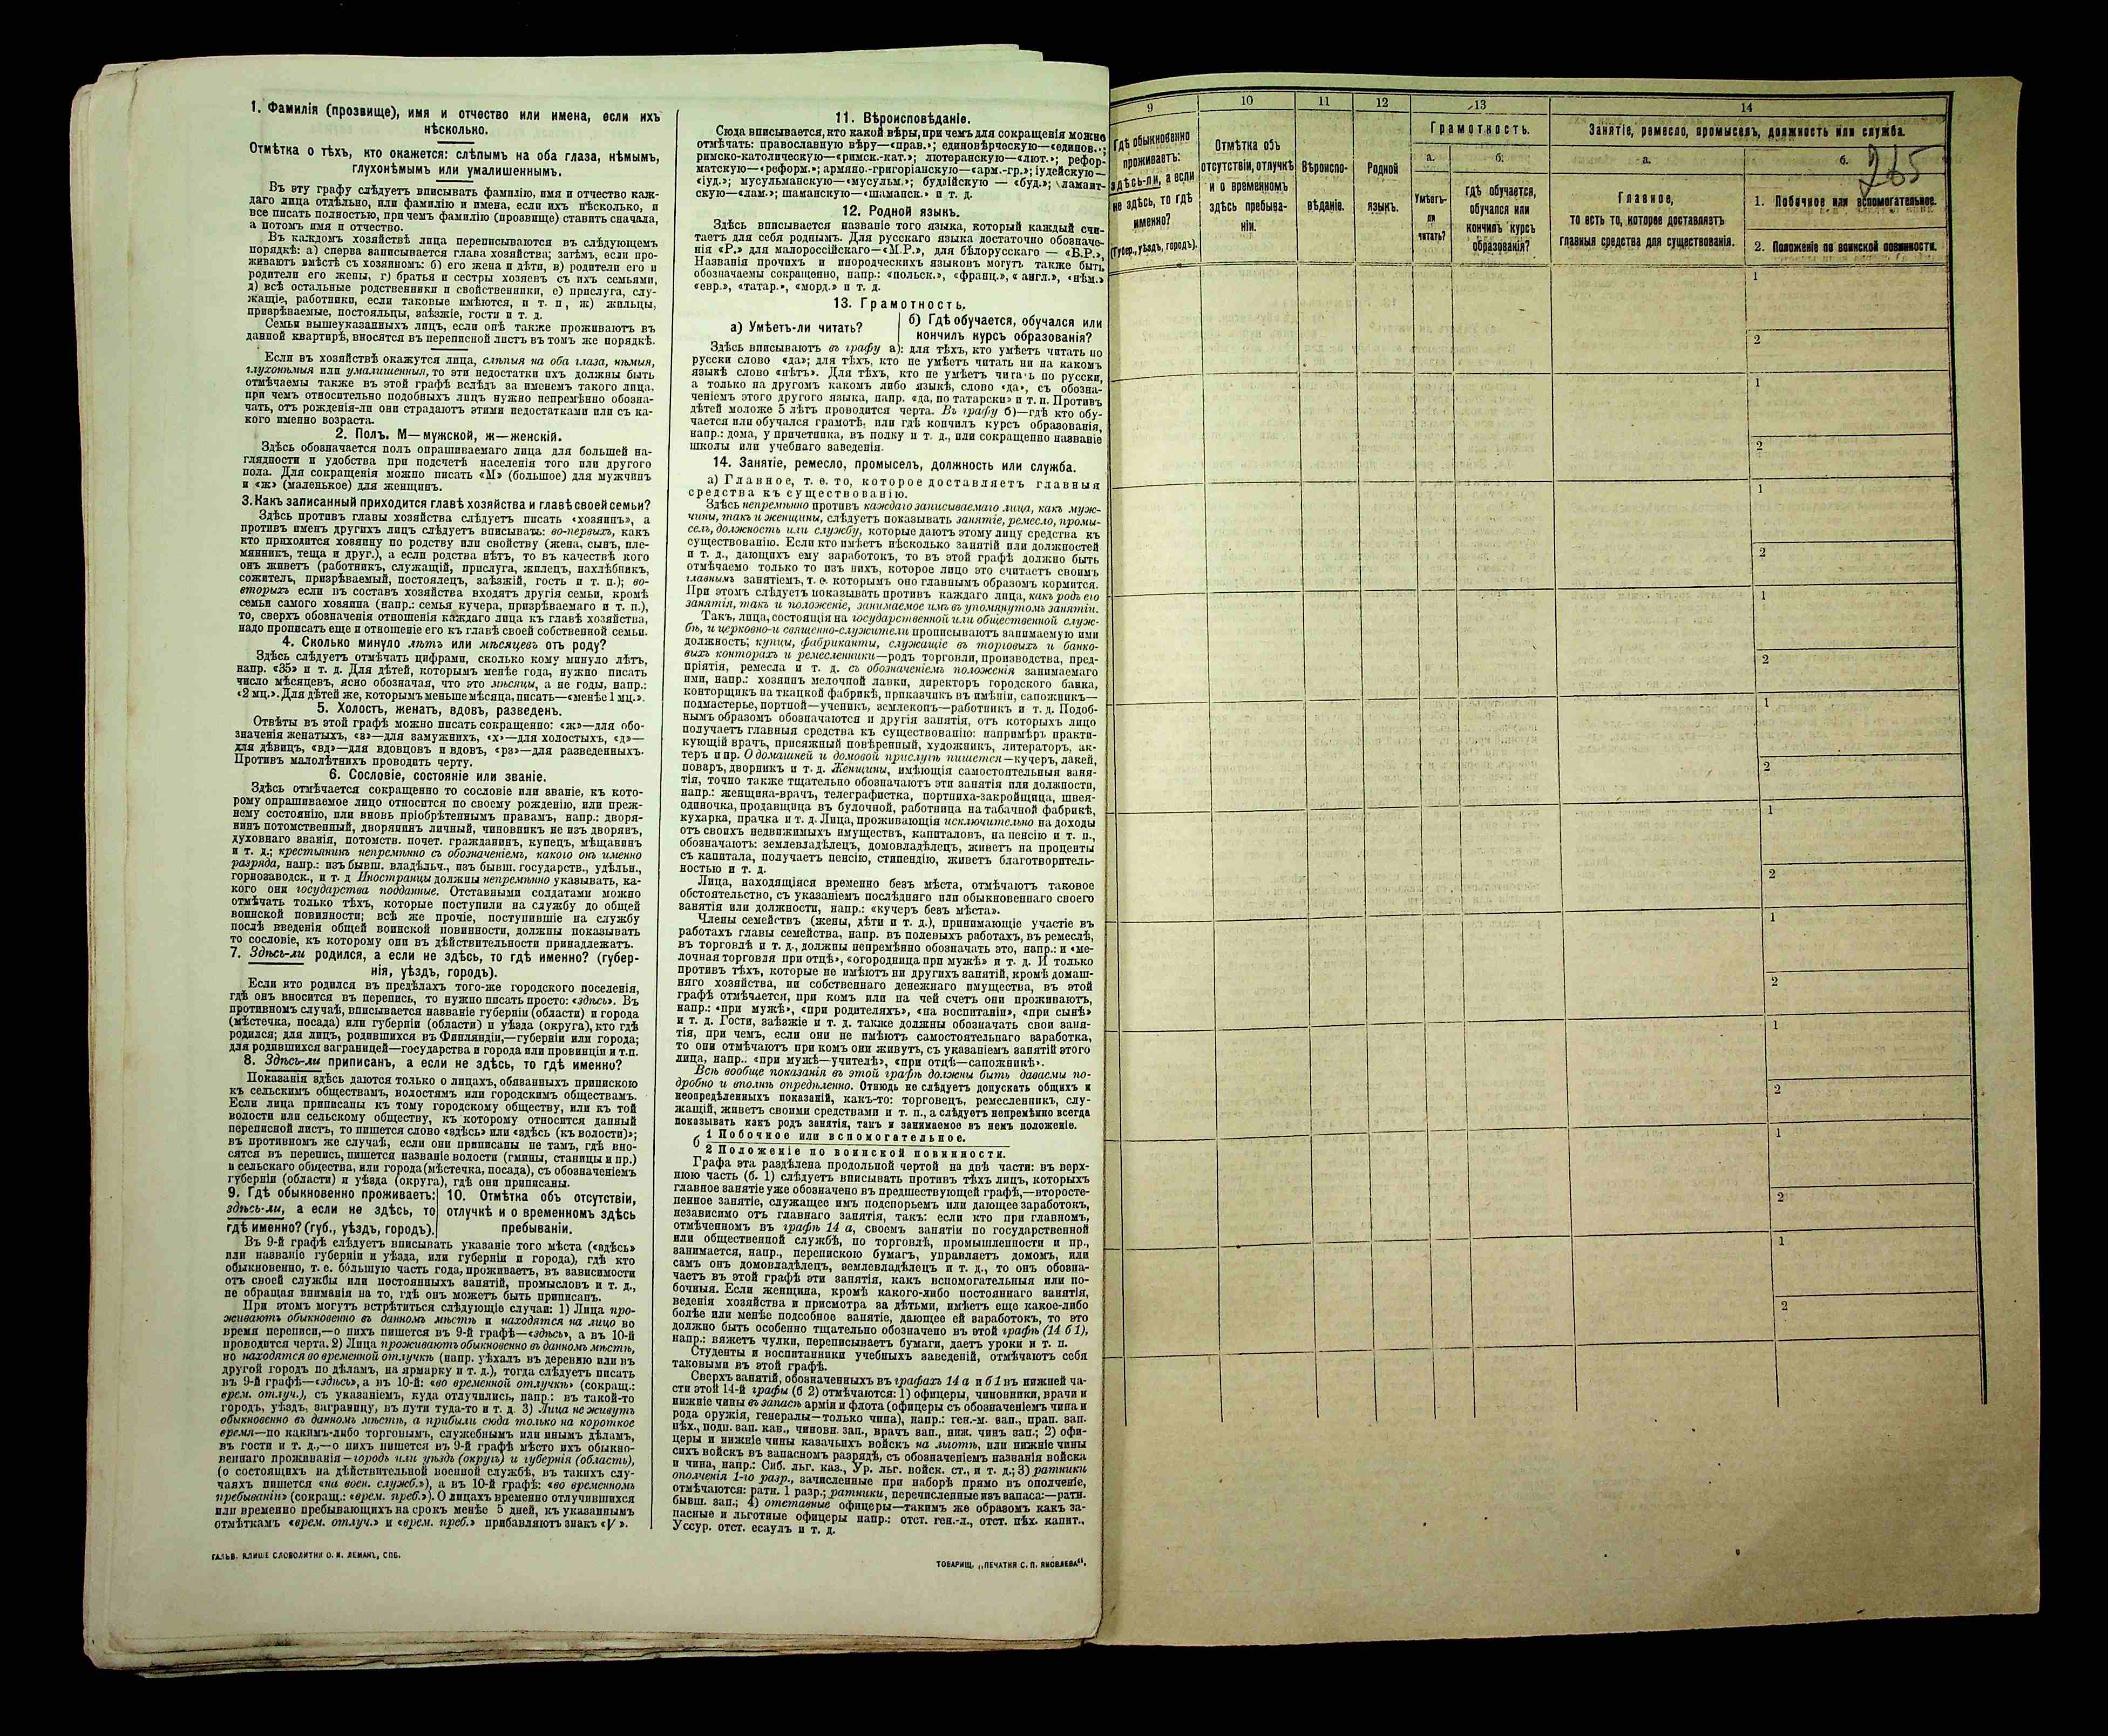 1. Фамилія (прозвище), имя и отчество или имена, если ихъ
нѣсколько.
Отмѣтка о тѣхъ, кто окажется: слѣпымъ на оба глаза, нѣмымъ,
глухонѣмымъ или умалишеннымъ.
Въ эту графу слѣдуетъ вписывать фамилію, имя и отчество каж-
даго лица отдѣльно, или фамилію и имена, если ихъ нѣсколько, и
все писать полностью, при чемъ фамилію (прозвище) ставить сначала,
а потомъ имя и отчество.
Въ каждомъ хозяйствѣ лица переписываются въ слѣдующемъ
порядкѣ: а) сперва записывается глава хозяйства; затѣмъ, если про-
живаютъ вмѣстѣ съ хозяиномъ: б) его жена и дѣти, в) родители его и
родители его жены, г) братья и сестры хозяевъ съ ихъ семьями,
д) всѣ остальные родственники и свойственники, е) прислуга, слу-
жащіе, работники, если таковые имѣются, и т. п, ж) жильцы,
призрѣваемые, постояльцы, заѣзжіе, гости и т. д.
Семьи вышеуказанныхъ лицъ, если онѣ также проживаютъ въ
данной квартирѣ, вносятся въ переписной листъ въ томъ же порядкѣ.
Если въ хозяйствѣ окажутся лица, слѣпыя на оба глаза, нѣмыя,
глухонѣмыя или умалишенныя, то эти недостатки ихъ должны быть
отмѣчаемы также въ этой графѣ вслѣдъ за именемъ такого лица,
при чемъ относительно подобныхъ лицъ нужно непремѣнно обозна-
чать, отъ рожденія-ли они страдаютъ этими недостатками или съ ка-
кого именно возраста.
2. Полъ. М—мужской, ж—женскій.
Здѣсь обозначается полъ опрашиваемаго лица для большей на-
глядности и удобства при подсчетѣ населенія того или другого
пола. Для сокращенія можно писать «М» (большое) для мужчинъ
и «ж» (маленькое) для женщинъ.
3. Какъ записанный приходится главѣ хозяйства и главѣ своей семьи?
Здѣсь противъ главы хозяйства слѣдуетъ писать «хозяинъ», а
противъ именъ другихъ лицъ слѣдуетъ вписывать: во-первыхъ, какъ
кто приходится хозяину по родству или свойству (жена, сынъ, пле-
мянникъ, теща и друг.), а если родства нѣтъ, то въ качествѣ кого
онъ живетъ (работникъ, служащій, прислуга, жилецъ, нахлѣбникъ,
сожитель, призрѣваемый, постоялецъ, заѣзжій, гость и т. п.); во-
вторыхъ если въ составъ хозяйства входятъ другія семьи, кромѣ
семьи самого хозяина (напр.: семья кучера, призрѣваемаго и т. п.),
то, сверхъ обозначенія отношенія каждаго лица къ главѣ хозяйства,
надо прописать еще и отношеніе его къ главѣ своей собственной семьи.
4. Сколько минуло лѣтъ или мѣсяцевъ отъ роду?
Здѣсь слѣдуетъ отмѣчать цифрами, сколько кому минуло лѣтъ,
напр. «35» и т. д. Для дѣтей, которымъ менѣе года, нужно писать
число мѣсяцевъ, ясно обозначая, что это мѣсяцы, а не годы, напр.:
«2 мц.». Для дѣтей же, которымъ меньше мѣсяца, писать—«менѣе 1 мц.».
5. Холостъ, женатъ, вдовъ, разведенъ.
Отвѣты въ этой графѣ можно писать сокращенно: «ж»—для обо-
значенія женатыхъ, «з»—для замужнихъ, «х»—для холостыхъ, «д»—
для дѣвицъ, «вд»—для вдовцовъ и вдовъ, «рз»—для разведенныхъ.
Противъ малолѣтнихъ проводить черту.
6. Сословіе, состояніе или званіе.
Здѣсь отмѣчается сокращенно то сословіе или званіе, къ кото-
рому опрашиваемое лицо относится по своему рожденію, или преж-
нему состоянію, или вновь пріобрѣтеннымъ правамъ, напр.: дворя-
нинъ потомственный, дворянинъ личный, чиновникъ не изъ дворянъ,
духовнаго званія, потомств. почет. гражданинъ, купецъ, мѣщанинъ
и т. д.; крестьянинъ непремѣнно съ обозначеніемъ, какого онъ именно
разряда, напр.: изъ бывш. владѣльч., изъ бывш. государств., удѣльн.,
горнозаводск., и т. д Иностранцы должны непремѣнно указывать, ка-
кого они государства подданные. Отставными солдатами можно
отмѣчать только тѣхъ, которые поступили на службу до общей
воинской повинности; всѣ же прочіе, поступившіе на службу
послѣ введенія общей воинской повинности, должны показывать
то сословіе, къ которому они въ дѣйствительности принадлежатъ.
7. Здѣсь-ли родился, а если не здѣсь, то гдѣ именно? (губер-
нія, уѣздъ, городъ).
Если кто родился въ предѣлахъ того-же городского поселенія,
гдѣ онъ вносится въ перепись, то нужно писать просто: «здѣсь». Въ
противномъ случаѣ, вписывается названіе губерніи (области) и города
(мѣстечка, посада) или губерніи (области) и уѣзда (округа), кто гдѣ
родился; для лицъ, родившихся въ Финляндіи,—губерніи или города;
для родившихся заграницей—государства и города или провинціи и т.п.
8. Здѣсь-ли приписанъ, а если не здѣсь, то гдѣ именно?
Показанія здѣсь даются только о лицахъ, обязанныхъ припискою
къ сельскимъ обществамъ, волостямъ или городскимъ обществамъ.
Если лица приписаны къ тому городскому обществу, или къ той
волости или сельскому обществу, къ которому относится данный
переписной листъ, то пишется слово «здѣсь» или «здѣсь (къ волости)»;
въ противномъ же случаѣ, если они приписаны не тамъ, гдѣ вно-
сятся въ перепись, пишется названіе волости (гмины, станицы и пр.)
и сельскаго общества, или города (мѣстечка, посада), съ обозначеніемъ
губерніи (области) и уѣзда (округа), гдѣ они приписаны.
9. Гдѣ обыкновенно проживаетъ:
здѣсь-ли, а если не здѣсь, то
гдѣ именно? (губ., уѣздъ, городъ).
10. Отмѣтка объ отсутствіи,
отлучкѣ и о временномъ здѣсь
пребываніи.
Въ 9-й графѣ слѣдуетъ вписывать указаніе того мѣста («здѣсь»
или названіе губерніи и уѣзда, или губерніи и города), гдѣ кто
обыкновенно, т. е. бо́льшую часть года, проживаетъ, въ зависимости
отъ своей службы или постоянныхъ занятій, промысловъ и т. д.,
не обращая вниманія на то, гдѣ онъ можетъ быть приписанъ.
При этомъ могутъ встрѣтиться слѣдующіе случаи: 1) Лица про-
живаютъ обыкновенно въ данномъ мѣстѣ и находятся на лицо во
время переписи,—о нихъ пишется въ 9-й графѣ—«здѣсь», а въ 10-й
проводится черта. 2) Лица проживаютъ обыкновенно въ данномъ мѣстѣ,
но находятся во временной отлучкѣ (напр. уѣхалъ въ деревню или въ
другой городъ по дѣламъ, на ярмарку и т. д.), тогда слѣдуетъ писать
въ 9-й графѣ—«здѣсь», а въ 10-й: «во временной отлучкѣ» (сокращ.:
врем. отлуч.), съ указаніемъ, куда отлучились, напр.: въ такой-то
городъ, уѣздъ, заграницу, въ пути туда-то и т. д. 3) Лица не живутъ
обыкновенно въ данномъ мѣстѣ, а прибыли сюда только на короткое
время—по какимъ-либо торговымъ, служебнымъ или инымъ дѣламъ,
въ гости и т. д.,—о нихъ пишется въ 9-й графѣ мѣсто ихъ обыкно-
веннаго проживанія—городъ или уѣздъ (округъ) и губернія (область),
(о состоящихъ на дѣйствительной военной службѣ, въ такихъ слу-
чаяхъ пишется «на воен. служб.»), а въ 10-й графѣ: «во временномъ
пребываніи» (сокращ.: «врем. преб.»). О лицахъ временно отлучившихся
или временно пребывающихъ на срокъ менѣе 5 дней, къ указаннымъ
отмѣткамъ «врем. отлуч.» и «врем. преб.» прибавляютъ знакъ «V».
ГАЛЬВ. КЛИШЕ СЛОВОЛИТНИ О. И. ЛЕМАНЪ, СПБ.
11. Вѣроисповѣданіе.
Сюда вписывается, кто какой вѣры, при чемъ для сокращенія можно
отмѣчать: православную вѣру—«прав.»; единовѣрческую—«единов.»;
римско-католическую—«римск.-кат.»; лютеранскую—«лют.»; рефор-
матскую—«реформ.»; армяно-григоріанскую—«арм.-гр.»; іудейскую—
«іуд.»; мусульманскую—«мусульм.»; буддійскую — «буд.»; ламаит-
скую—«лам.»; шаманскую—«шаманск.» и т. д.
12. Родной языкъ.
Здѣсь вписывается названіе того языка, который каждый счи-
таетъ для себя роднымъ. Для русскаго языка достаточно обозначе-
нія «Р.» для малороссійскаго—«М.Р.», для бѣлорусскаго — «Б.Р.»,
Названія прочихъ и инородческихъ языковъ могутъ также быть
обозначаемы сокращенно, напр.: «польск.», «франц.», «англ.», «нѣм.»
«евр.», «татар.», «морд.» и т. д.
13. Грамотность.
а) Умѣетъ-ли читать?
б) Гдѣ обучается, обучался или
кончилъ курсъ образованія?
Здѣсь вписываютъ въ графу а): для тѣхъ, кто умѣетъ читать по
русски слово «да»; для тѣхъ, кто не умѣетъ читать ни на какомъ
языкѣ слово «нѣтъ». Для тѣхъ, кто не умѣетъ читать по русски,
а только на другомъ какомъ либо языкѣ, слово «да», съ обозна-
ченіемъ этого другого языка, напр. «да, по татарски» и т. п. Противъ
дѣтей моложе 5 лѣтъ проводится черта. Въ графу б)—гдѣ кто обу-
чается или обучался грамотѣ, или гдѣ кончилъ курсъ образованія,
напр.: дома, у причетника, въ полку и т. д., или сокращенно названіе
школы или учебнаго заведенія.
14. Занятіе, ремесло, промыселъ, должность или служба.
а) Главное, т. е. то, которое доставляетъ главныя
средства къ существованію.
Здѣсь непремѣнно противъ каждаго записываемаго лица, какъ муж-
чины, такъ и женщины, слѣдуетъ показывать занятіе, ремесло, промы-
селъ, должность или службу, которые даютъ этому лицу средства къ
существованію. Если кто имѣетъ нѣсколько занятій или должностей
и т. д., дающихъ ему заработокъ, то въ этой графѣ должно быть
отмѣчаемо только то изъ нихъ, которое лицо это считаетъ своимъ
главнымъ занятіемъ, т. е. которымъ оно главнымъ образомъ кормится.
При этомъ слѣдуетъ показывать противъ каждаго лица, какъ родъ его
занятія, такъ и положеніе, занимаемое имъ въ упомянутомъ занятіи.
Такъ, лица, состоящія на государственной или общественной служ-
бѣ, и церковно-и священно-служители прописываютъ занимаемую ими
должность; купцы, фабриканты, служащіе въ торговыхъ и банко-
выхъ конторахъ и ремесленники—родъ торговли, производства, пред-
пріятія, ремесла и т. д. съ обозначеніемъ положенія занимаемаго
ими, напр.: хозяинъ мелочной лавки, директоръ городского банка,
конторщикъ на ткацкой фабрикѣ, приказчикъ въ имѣніи, сапожникъ—
подмастерье, портной—ученикъ, землекопъ—работникъ и т. д. Подоб-
нымъ образомъ обозначаются и другія занятія, отъ которыхъ лицо
получаетъ главныя средства къ существованію: напримѣръ практи-
кующій врачъ, присяжный повѣренный, художникъ, литераторъ, ак-
теръ и пр. О домашней и домовой прислугѣ пишется—кучеръ, лакей,
поваръ, дворникъ и т. д. Женщины, имѣющія самостоятельныя заня-
тія, точно также тщательно обозначаютъ эти занятія или должности,
напр.: женщина-врачъ, телеграфистка, портниха-закройщица, швея-
одиночка, продавщица въ булочной, работница на табачной фабрикѣ,
кухарка, прачка и т. д. Лица, проживающія исключительно на доходы
отъ своихъ недвижимыхъ имуществъ, капиталовъ, на пенсію и т. п.,
обозначаютъ: землевладѣлецъ, домовладѣлецъ, живетъ на проценты
съ капитала, получаетъ пенсію, стипендію, живетъ благотворитель-
ностью и т. д.
Лица, находящіяся временно безъ мѣста, отмѣчаютъ таковое
обстоятельство, съ указаніемъ послѣдняго или обыкновеннаго своего
занятія или должности, напр.: «кучеръ безъ мѣста».
Члены семействъ (жены, дѣти и т. д.), принимающіе участіе въ
работахъ главы семейства, напр. въ полевыхъ работахъ, въ ремеслѣ,
въ торговлѣ и т. д., должны непремѣнно обозначать это, напр.: и «ме-
лочная торговля при отцѣ», «огородница при мужѣ» и т. д. И только
противъ тѣхъ, которые не имѣютъ ни другихъ занятій, кромѣ домаш-
няго хозяйства, ни собственнаго денежнаго имущества, въ этой
графѣ отмѣчается, при комъ или на чей счетъ они проживаютъ,
напр.: «при мужѣ», «при родителяхъ», «на воспитаніи», «при сынѣ»
и т. д. Гости, заѣзжіе и т. д. также должны обозначать свои заня-
тія, при чемъ, если они не имѣютъ самостоятельнаго заработка,
то они отмѣчаютъ при комъ они живутъ, съ указаніемъ занятій этого
лица, напр.: «при мужѣ—учителѣ», «при отцѣ—сапожникѣ».
Всѣ вообще показанія въ этой графѣ должны быть даваемы по-
дробно и вполнѣ опредѣленно. Отнюдь не слѣдуетъ допускать общихъ и
неопредѣленныхъ показаній, какъ-то: торговецъ, ремесленникъ, слу-
жащій, живетъ своими средствами и т. п., а слѣдуетъ непремѣнно всегда
показывать какъ родъ занятія, такъ и занимаемое въ немъ положеніе.
б 1 Побочное или вспомогательное.
2 Положеніе по воинской повинности.
Графа эта раздѣлена продольной чертой на двѣ части: въ верх-
нюю часть (б. 1) слѣдуетъ вписывать противъ тѣхъ лицъ, которыхъ
главное занятіе уже обозначено въ предшествующей графѣ,—второсте-
пенное занятіе, служащее имъ подспорьемъ или дающее заработокъ,
независимо отъ главнаго занятія, такъ: если кто при главномъ,
отмѣченномъ въ графѣ 14 а, своемъ занятіи по государственной
или общественной службѣ, по торговлѣ, промышленности и пр.,
занимается, напр., перепискою бумагъ, управляетъ домомъ, или
самъ онъ домовладѣлецъ, землевладѣлецъ и т. д., то онъ обозна-
чаетъ въ этой графѣ эти занятія, какъ вспомогательныя или по-
бочныя. Если женщина, кромѣ какого-либо постояннаго занятія,
веденія хозяйства и присмотра за дѣтьми, имѣетъ еще какое-либо
болѣе или менѣе подсобное занятіе, дающее ей заработокъ, то это
должно быть особенно тщательно обозначено въ этой графѣ (14 б 1),
напр.: вяжетъ чулки, переписываетъ бумаги, даетъ уроки и т. п.
Студенты и воспитанники учебныхъ заведеній, отмѣчаютъ себя
таковыми въ этой графѣ.
Сверхъ занятій, обозначенныхъ въ графахъ 14 а и б 1 въ нижней ча-
сти этой 14-й графы (б 2) отмѣчаются: 1) офицеры, чиновники, врачи и
нижніе чины въ запасѣ арміи и флота (офицеры съ обозначеніемъ чина и
рода оружія, генералы—только чина), напр.: ген.-м. зап., прап. зап.
пѣх., подп. зап. кав., чиновн. зап., врачъ зап., ниж. чинъ зап.; 2) офи-
церы и нижніе чины казачьихъ войскъ на льготѣ, или нижніе чины
сихъ войскъ въ запасномъ разрядѣ, съ обозначеніемъ названія войска
и чина, напр.: Сиб. льг. каз., Ур. льг. войск. ст., и т. д.; 3) ратники
ополченія 1-го разр., зачисленные при наборѣ прямо въ ополченіе,
отмѣчаются: ратн. 1 разр.; ратники, перечисленные изъ запаса:—ратн.
бывш. зап.; 4) отставные офицеры—такимъ же образомъ какъ за-
пасные и льготные офицеры напр.: отст. ген.-л., отст. пѣх. капит.,
Уссур. отст. есаулъ и т. д.
ТОВАРИЩ. „ПЕЧАТНЯ С. П. ЯКОВЛЕВА".
9
10
11
12
13
14
Гдѣ обыкновенно
проживаетъ:
здѣсь-ли, а если
не здѣсь, то гдѣ
именно?
(Губер., уѣздъ, городъ).
Отмѣтка объ
отсутствіи, отлучкѣ
и о временномъ
здѣсь пребыва-
ніи.
Вѣроиспо-
вѣданіе.
Родной
языкъ.
Грамотность.
а.
Умѣетъ-
ли
читать?
б.
Гдѣ обучается,
обучался или
кончилъ курсъ
образованія?
Занятіе, ремесло, промыселъ, должность или служба.
а.
Главное,
то есть то, которое доставляетъ
главныя средства для существованія.
б.
265
1. Побочное или вспомогательное.
2. Положеніе по воинской повинности.
1
2
1
2
1
2
1
2
1
2
1
2
1
2
1
2
1
2
1
2